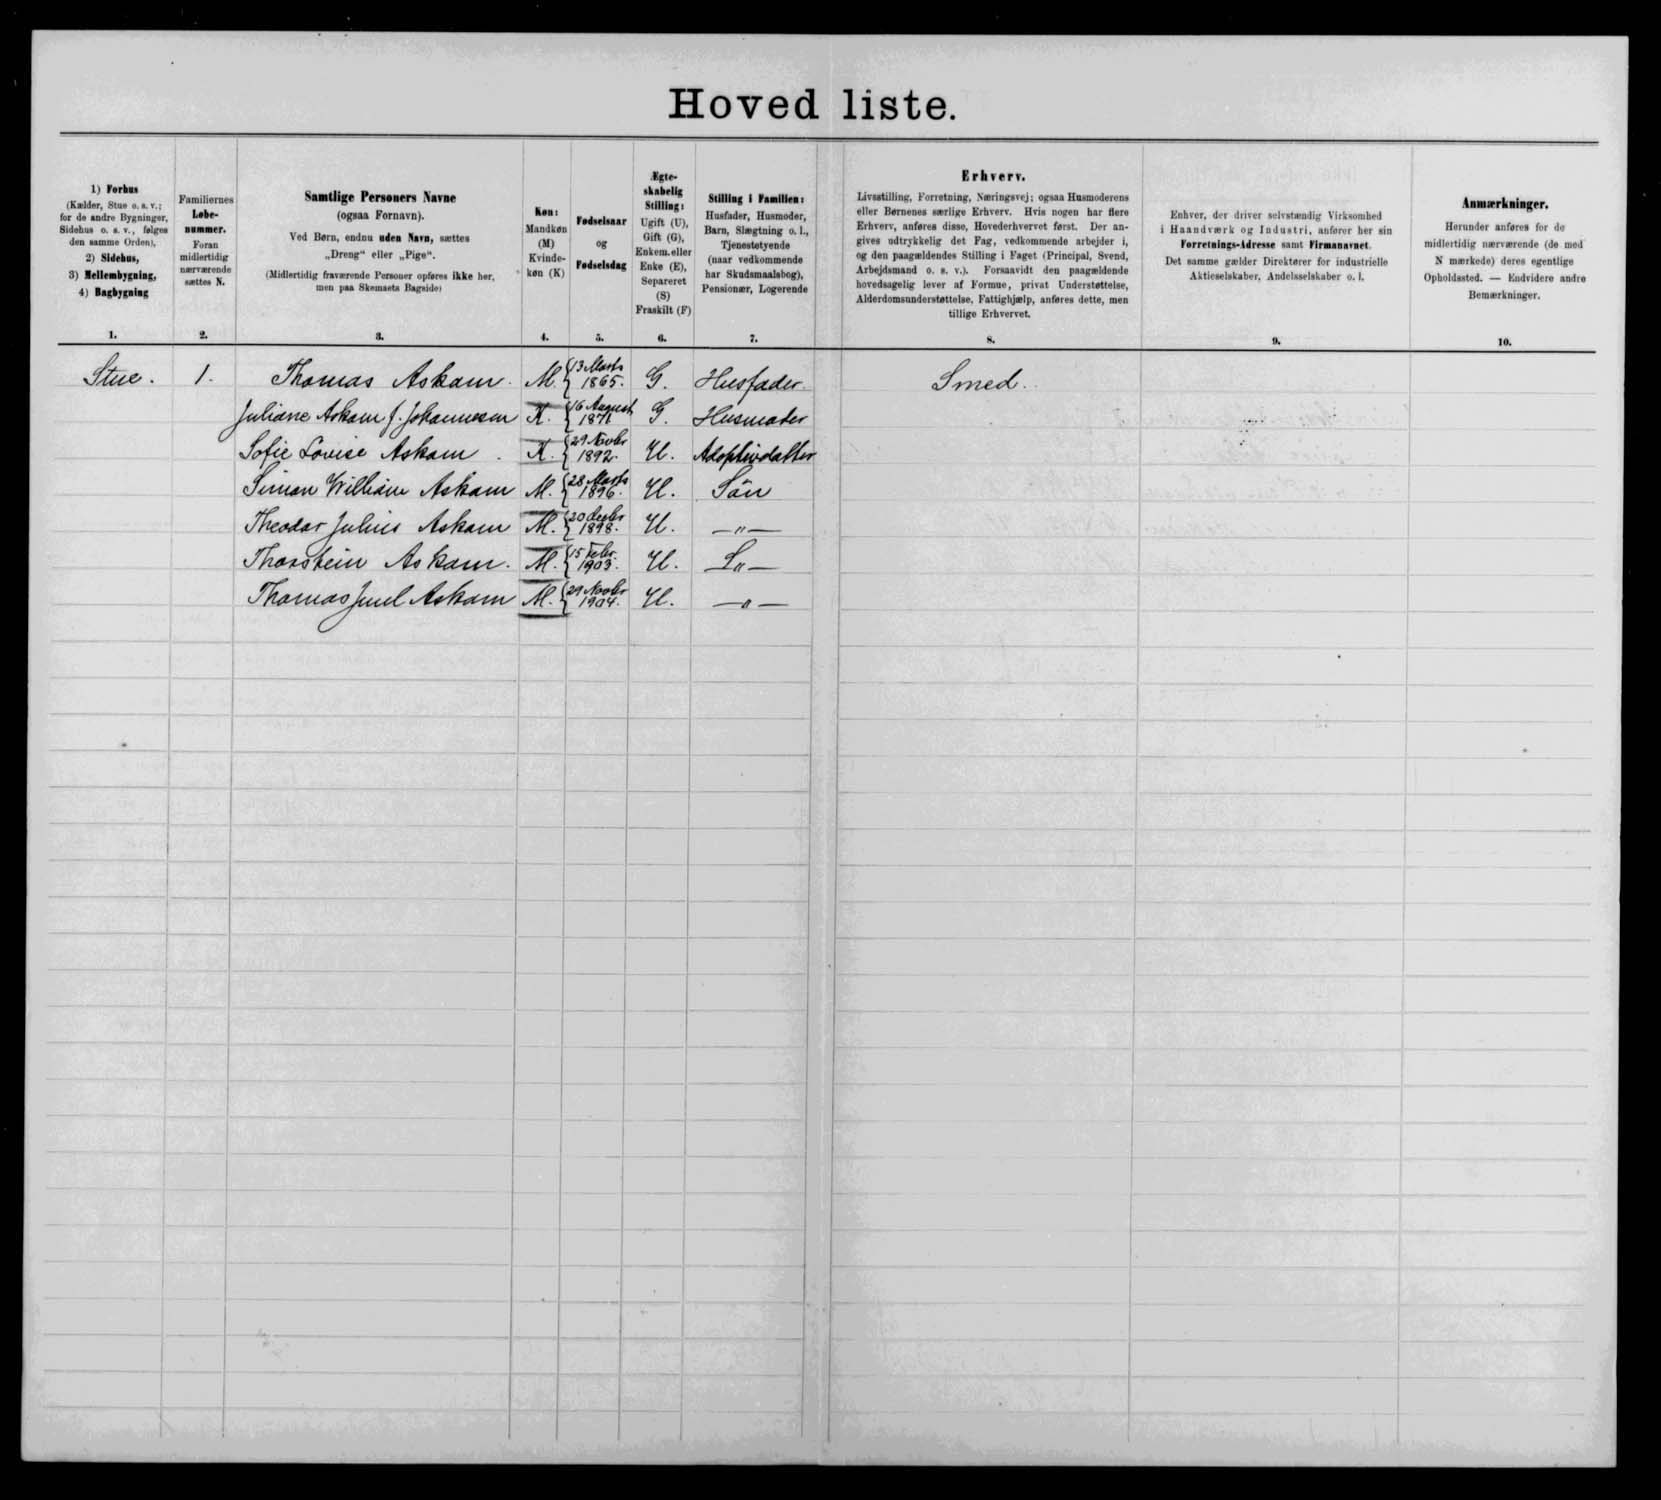 Hoved liste.
1) Forhus
(Kælder, Stue o. s. v.;
for de andre Bygninger,
Sidehus o. s. v., følges
den samme Orden),
2) Sidehus,
3) Mellembygning,
4) Bagbygning
1.
Familiernes
Løbe-
nummer.
Foran
midlertidig
nærværende
sættes N.
2.
Samtlige Personers Navne
(ogsaa Fornavn).
Ved Børn, endnu uden Navn, sættes
„Dreng“ eller „Pige“.
(Midlertidig fraværende Personer opføres ikke her,
men paa Skemaets Bagside)
3.
Køn:
Mandkøn
(M)
Kvinde-
køn (K)
4.
Fødselsaar
og
Fødselsdag
5.
Ægte-
skabelig
Stilling:
Ugift (U),
Gift (G),
Enkem. eller
Enke (E),
Separeret
(S)
Fraskilt (F)
6.
Stilling i Familien:
Husfader, Husmoder,
Barn, Slægtning o. l.,
Tjenestetyende
(naar vedkommende
har Skudsmaalsbog),
Pensionær, Logerende
7.
Erhverv.
Livsstilling, Forretning, Næringsvej; ogsaa Husmoderens
eller Børnenes særlige Erhverv. Hvis nogen har flere
Erhverv, anføres disse, Hovederhvervet først. Der an-
gives udtrykkelig det Fag, vedkommende arbejder i,
og den paagældendes Stilling i Faget (Principal, Svend,
Arbejdsmand o. s. v.). Forsaavidt den paagældende
hovedsagelig lever af Formue, privat Understøttelse,
Alderdomsunderstøttelse, Fattighjælp, anføres dette, men
tillige Erhvervet.
8.
Enhver, der driver selvstændig Virksomhed
i Haandværk og Industri, anfører her sin
Forretnings-Adresse samt Firmanavnet.
Det samme gælder Direktører for industrielle
Aktieselskaber, Andelsselskaber o. l.
9.
Anmærkninger.
Herunder anføres for de
midlertidig nærværende (de med
N mærkede) deres egentlige
Opholdssted. — Endvidere andre
Bemærkninger.
10.
Stue. 1. Thomas Askam. M. { 13 Marts 1865. G. Husfader. Smed.
Juliane Askam f. Johannesen K. { 16 August 1871 G. Husmoder
Sofie Lovise Askam . K. { 29 Novbr 1892. U. Adoptivdatter
Simon William Askam M. { 28 Marts 1896. U. Sön
Theodor Julius Askam M. { 20 Decbr 1898. U. —"—
Thorstein Askam. M. { 15 Febr. 1903. U. S"—
Thomas Juul Askam M. { 29 Novbr 1904. U. —"—